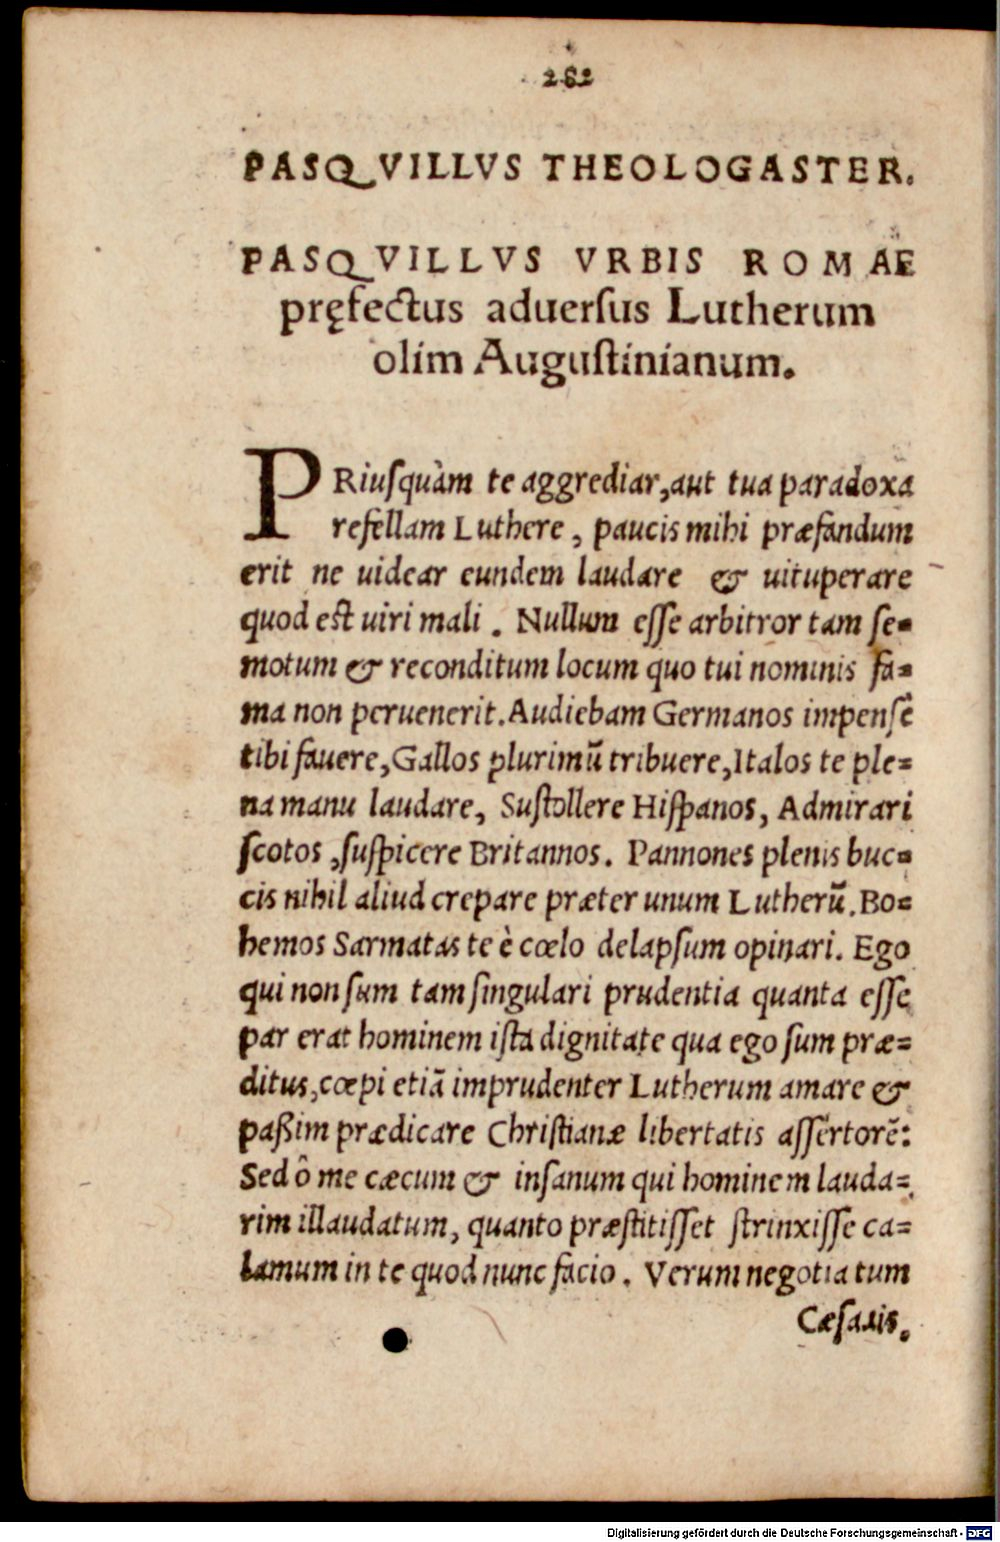 282
PASQVILLVS THEOLOGASTER.
PASQVILLVS VRBIS ROMAE
pręfectus aduersus Lutherum
olim Augustinianum.
PRiusquàm te aggrediar, aut tua paradoxa
refellam Luthere, paucis mihi præfandum
erit ne uidear eundem laudare & uituperare
quod est uiri mali. Nullum esse arbitror tam se-
motum & reconditum locum quo tui nominis fa-
ma non peruenerit. Audiebam Germanos impensè
tibi fauere, Gallos plurimū tribuere, Italos te ple-
na manu laudare, Sustollere Hispanos, Admirari
scotos, suspicere Britannos. Pannones plenis buc-
cis nihil aliud crepare præter unum Lutherū. Bo-
hemos Sarmatas te è cœlo delapsum opinari. Ego
qui non sum tam singulari prudentia quanta esse
par erat hominem ista dignitate qua ego sum præ-
ditus, cœpi etiā imprudenter Lutherum amare &
paßim prædicare Christianæ libertatis assertorē:
Sed ô me cæcum & insanum qui hominem lauda-
rim illaudatum, quanto præstitisset strinxisse ca-
lamum in te quod nunc facio. Verum negotia tum
Cæsaris.
Digitalisierung gefördert durch die Deutsche Forschungsgemeinschaft - DFG